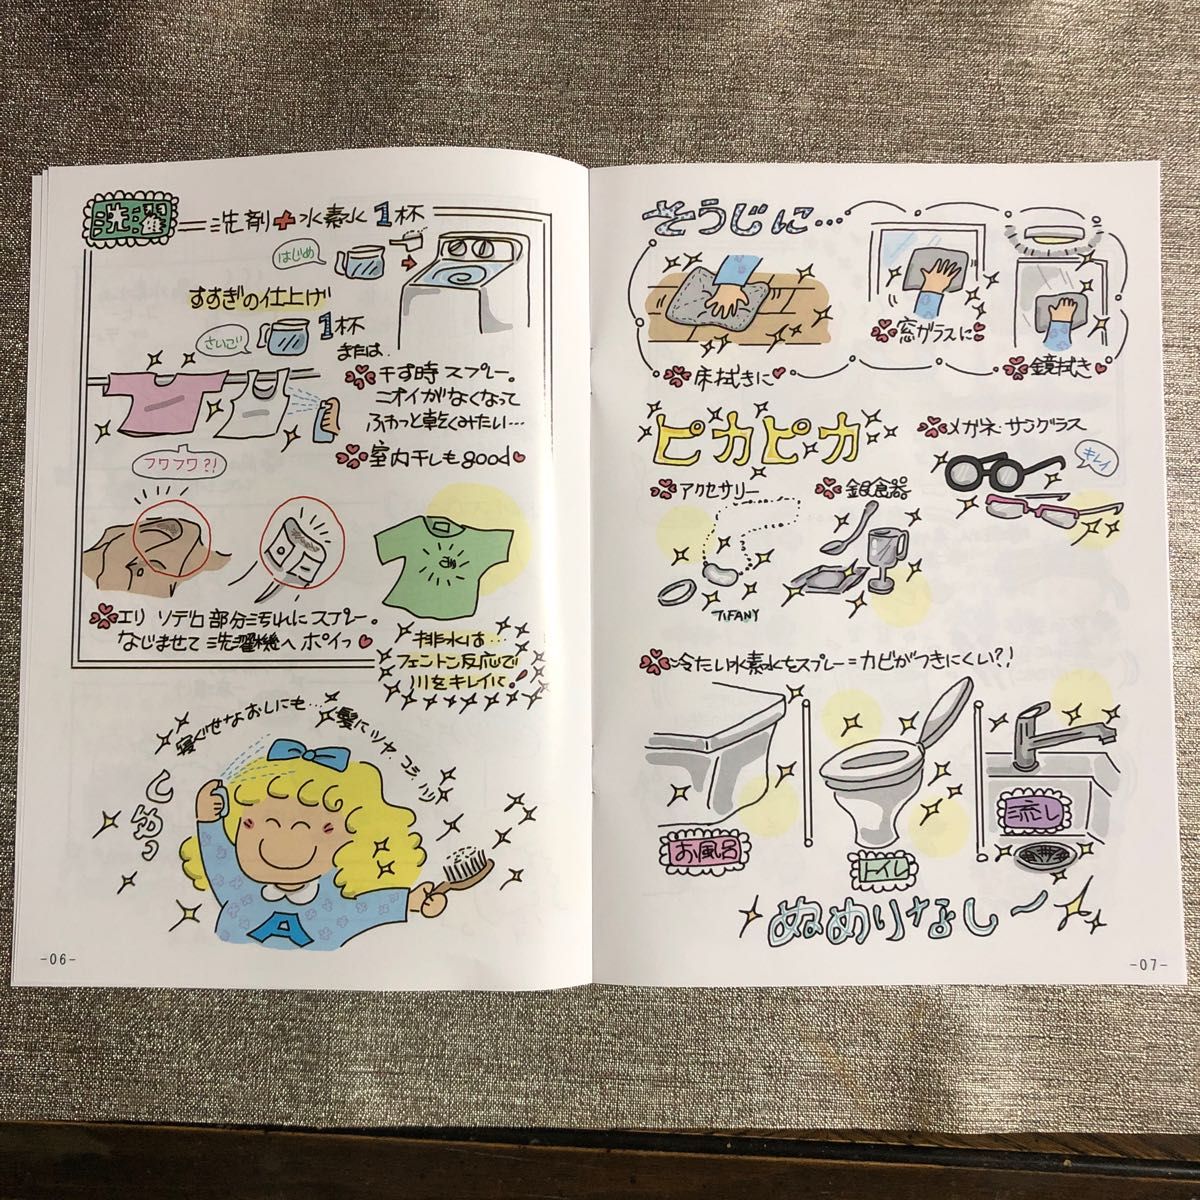 洗濯 = 洗剤+水素水1杯
はじめ
すすぎの仕上げ
さいご
1杯
または
干す時スプレー。
ニオイがなくなって
ふわっと乾くみたい…
室内干しもgood
フワフワ?!
エリ ソデ口部分汚れにスプレー。
なじませて洗濯機へポイっ
排水は…
フェントン反応で
川をキレイに!
寝ぐせなおしにも… 髪にツヤ・コシ・ハリ
しゅっ
A
-06-
そうじに…
床拭きに
窓ガラスに
鏡拭き
ピカピカ
メガネ・サングラス
キレイ
アクセサリー
銀食器
TIFANY
冷たい水素水をスプレー=カビがつきにくい?!
お風呂
トイレ
流し
ぬめりなし〜
-07-